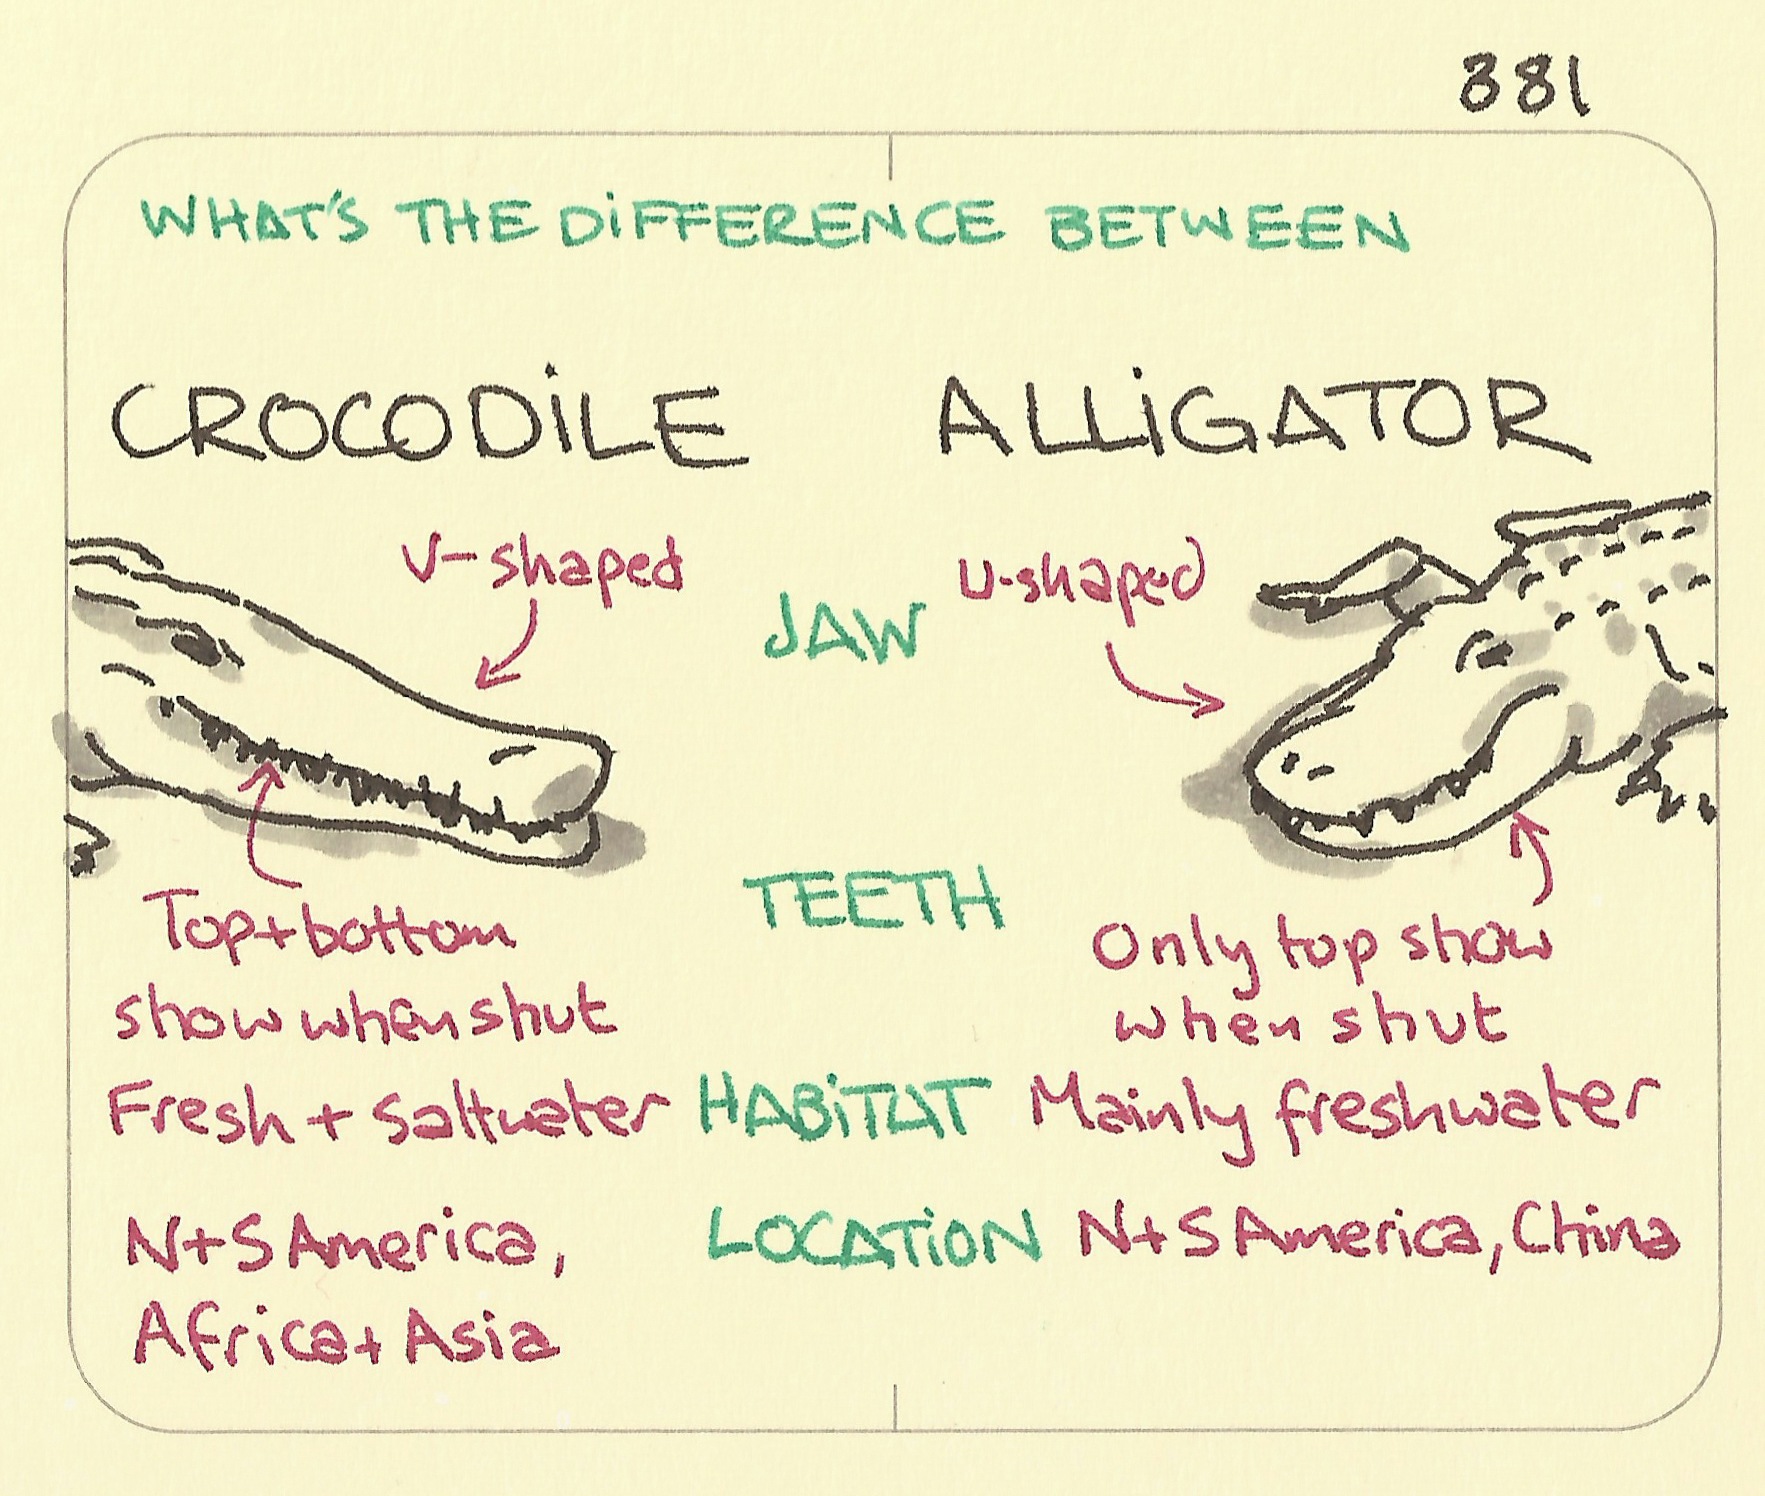 381
WHAT'S THE DIFFERENCE BETWEEN
CROCODILE
ALLIGATOR
V-shaped
JAW
U-shaped
Top+bottom
show when shut
TEETH
Only top show
when shut
Fresh + Saltwater
HABITAT
Mainly freshwater
N+S America,
Africa+ Asia
LOCATION
N+S America, China